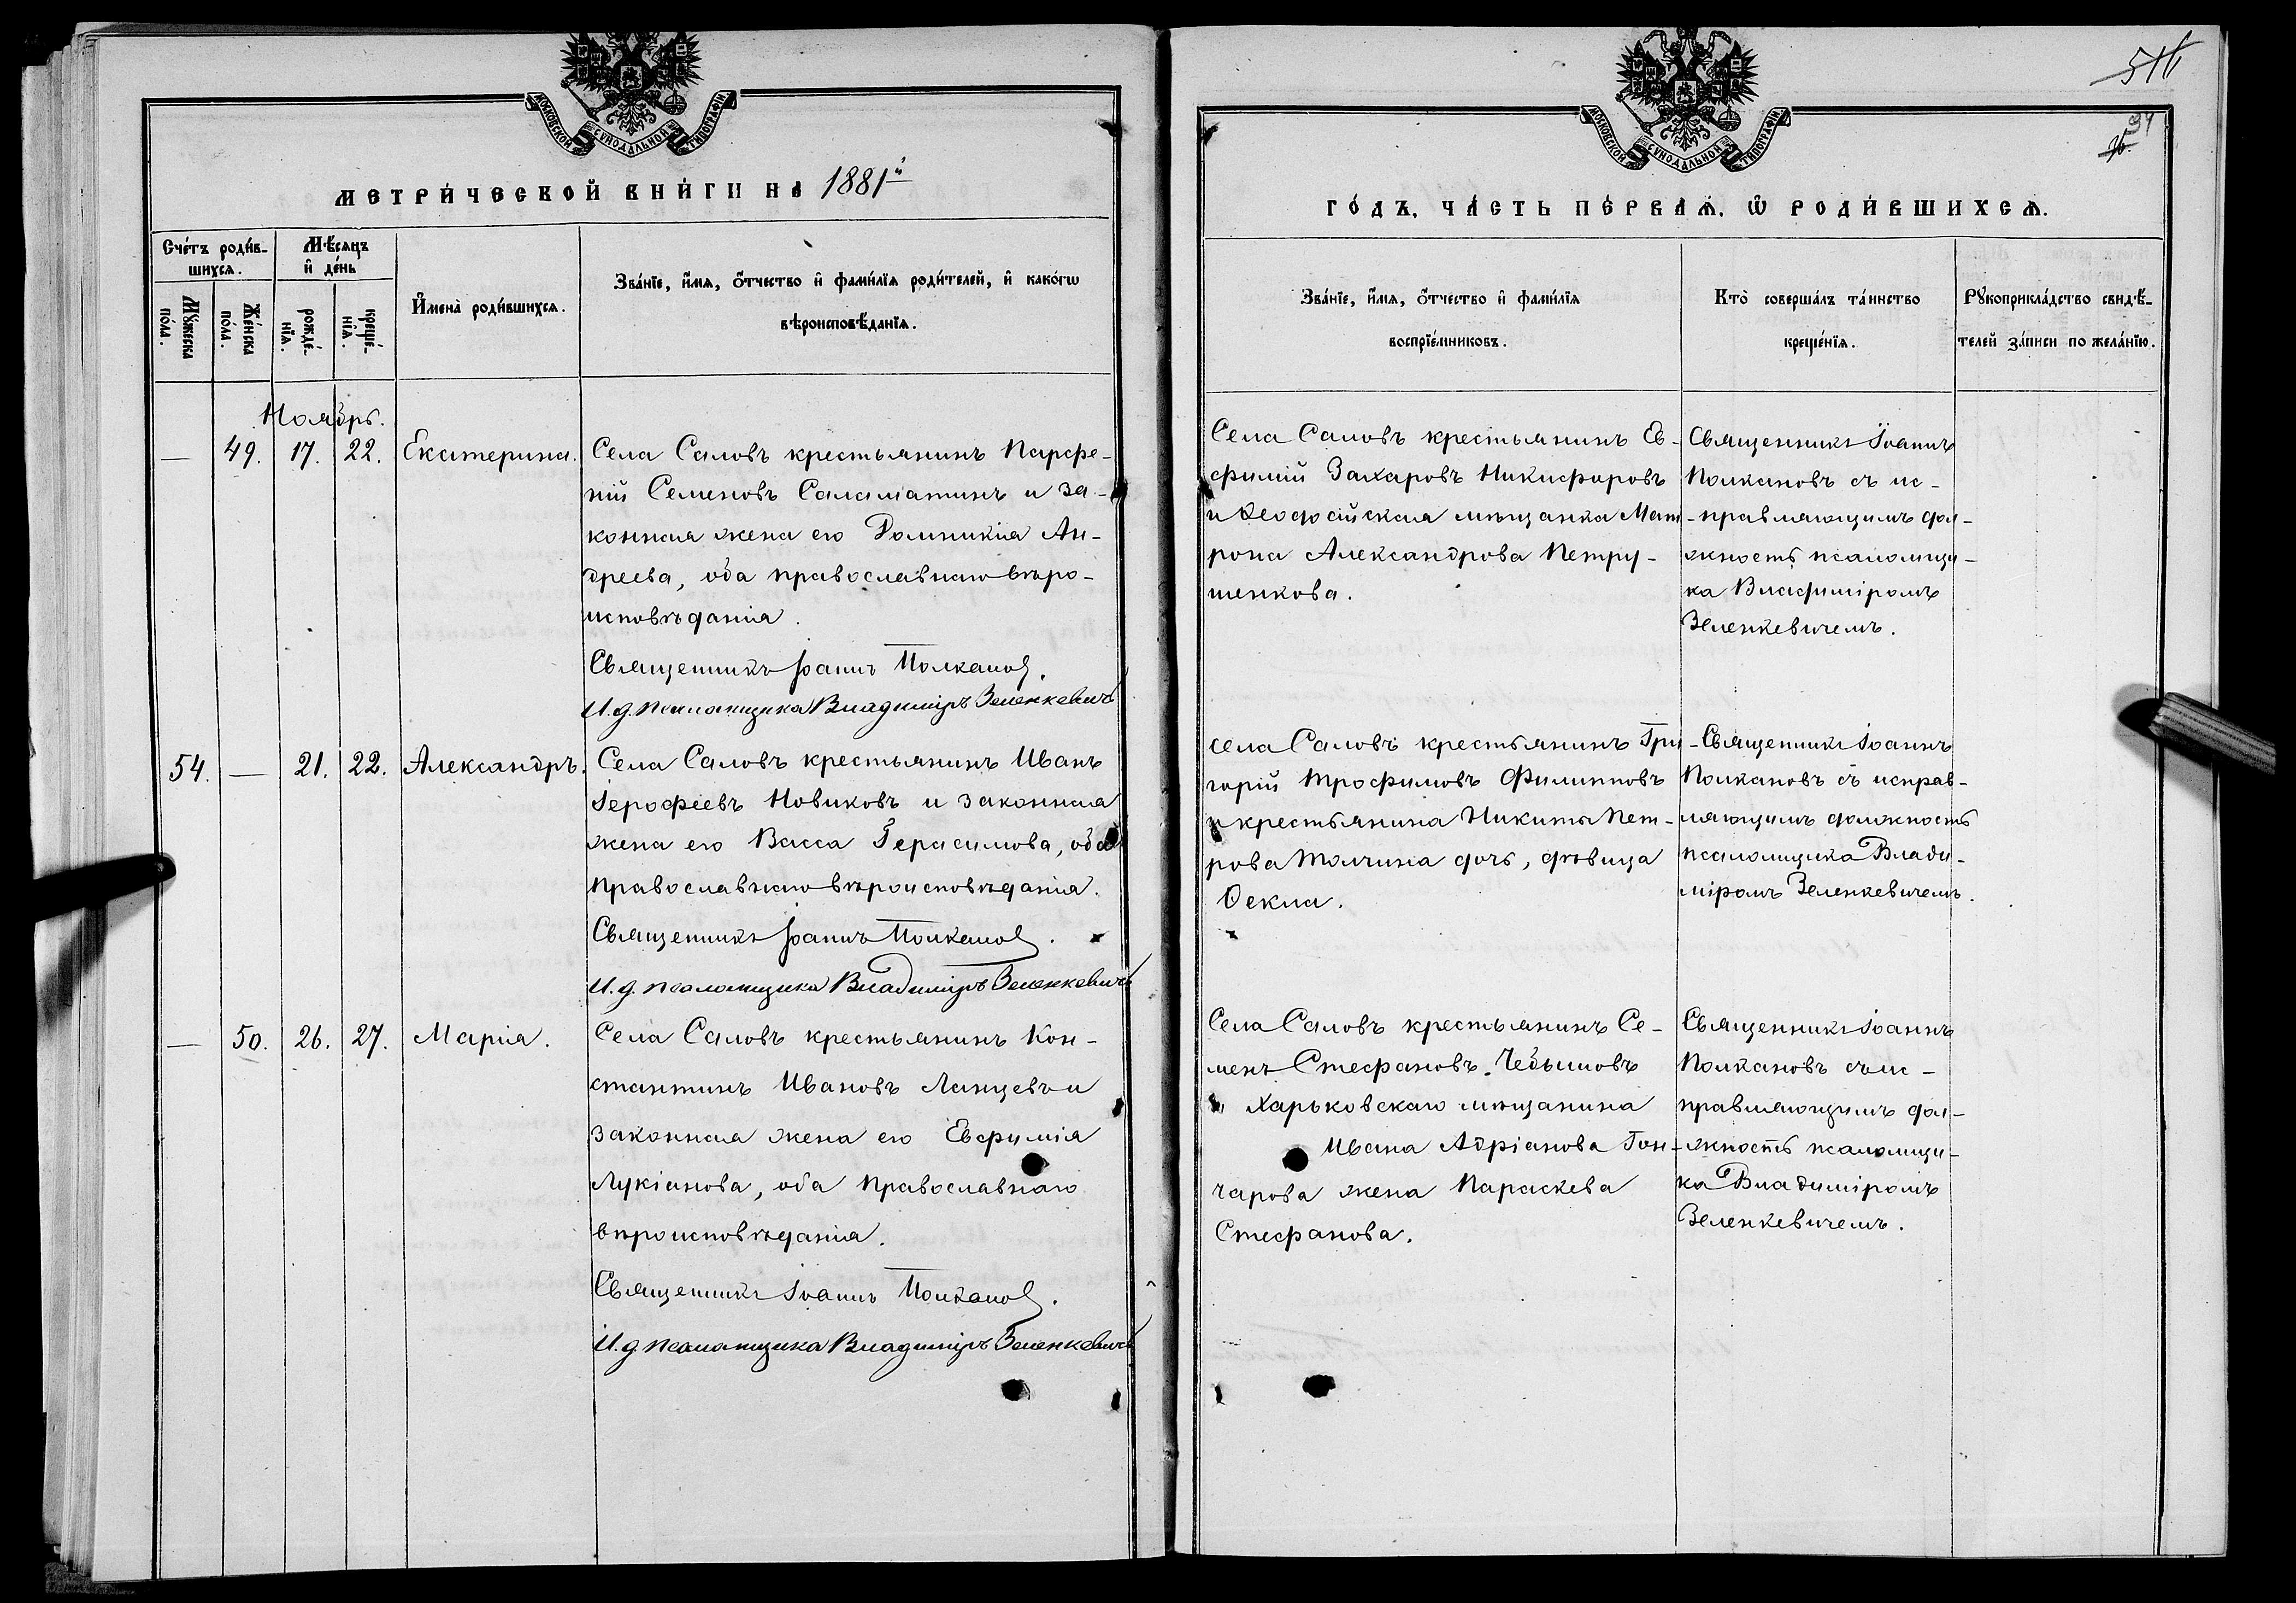 МОСКОВСКОЙ СѴНОДАЛЬНОЙ ТИПОГРАФІИ
МЕТРИ́ЧЕСКОЙ КНИ́ГИ НА 1881й
Сче́тъ роди́в-
шихся.
Мѣ́сяцъ
и де́нь
Му́жеска
по́ла.
Же́нска
по́ла.
рожде́-
нїя.
креще́-
нїя.
Имена̀ роди́вшихся.
Зва́нїе, и́мя, о́тчество и фами́лїя роди́телей, и како́гѡ
вѣроисповѣ́данїя.
Ноябрь.
— 49. 17. 22. Екатерина.
Села Саловъ крестьянинъ Парфе-
ній Семеновъ Саламатинъ и за-
конная жена его Домникія Ан-
дреева, оба православнаго вѣро-
исповѣданія.
Священникъ Іоаннъ Полкановъ.
И. д. псаломщика Владиміръ Зеленкевичъ
54. — 21. 22. Александръ.
Села Саловъ крестьянинъ Иванъ
Іерофеевъ Новиковъ и законная
жена его Васса Герасимова, оба
православнаго вѣроисповѣданія.
Священникъ Іоаннъ Полкановъ.
И. д. псаломщика Владиміръ Зеленкевичъ
— 50. 26. 27. Марія.
Села Саловъ крестьянинъ Кон-
стантинъ Ивановъ Ланцевъ и
законная жена его Евфимія
Лукіанова, оба православнаго
вѣроисповѣданія.
Священникъ Іоаннъ Полкановъ.
И. д. псаломщика Владиміръ Зеленкевичъ
516
94
МОСКОВСКОЙ СѴНОДАЛЬНОЙ ТИПОГРАФІИ
ГО́ДЪ, ЧА́СТЬ ПЕ́РВАЯ, Ѡ РОДИ́ВШИХСЯ.
Зва́нїе, и́мя, о́тчество и фами́лїя
воспрїе́мниковъ.
Кто̀ соверша́лъ та́инство
креще́нїя.
Рꙋкоприкла́дство свидѣ́-
телей за́писи по жела́нїю.
Села Саловъ крестьянинъ Ев-
фимій Захаровъ Никифоровъ
и Ѳеодосійская мѣщанка Мат-
рона Александрова Петру-
шенкова.
Священникъ Іоаннъ
Полкановъ съ ис-
правляющимъ дол-
жность псаломщи-
ка Владиміромъ
Зеленкевичемъ.
Села Саловъ крестьянинъ Гри-
горій Трофимовъ Филипповъ
и крестьянина Никиты Пет-
рова Толчина дочь, дѣвица
Ѳекла.
Священникъ Іоаннъ
Полкановъ съ исправ-
ляющимъ должность
псаломщика Влади-
міромъ Зеленкевичемъ.
Села Саловъ крестьянинъ Се-
менъ Стефановъ Чебышовъ
и Харьковскаго мѣщанина
Ивана Адріанова Гон-
чарова жена Параскева
Стефанова.
Священникъ Іоаннъ
Полкановъ съ ис-
правляющимъ дол-
жность псаломщи-
ка Владиміромъ
Зеленкевичемъ.